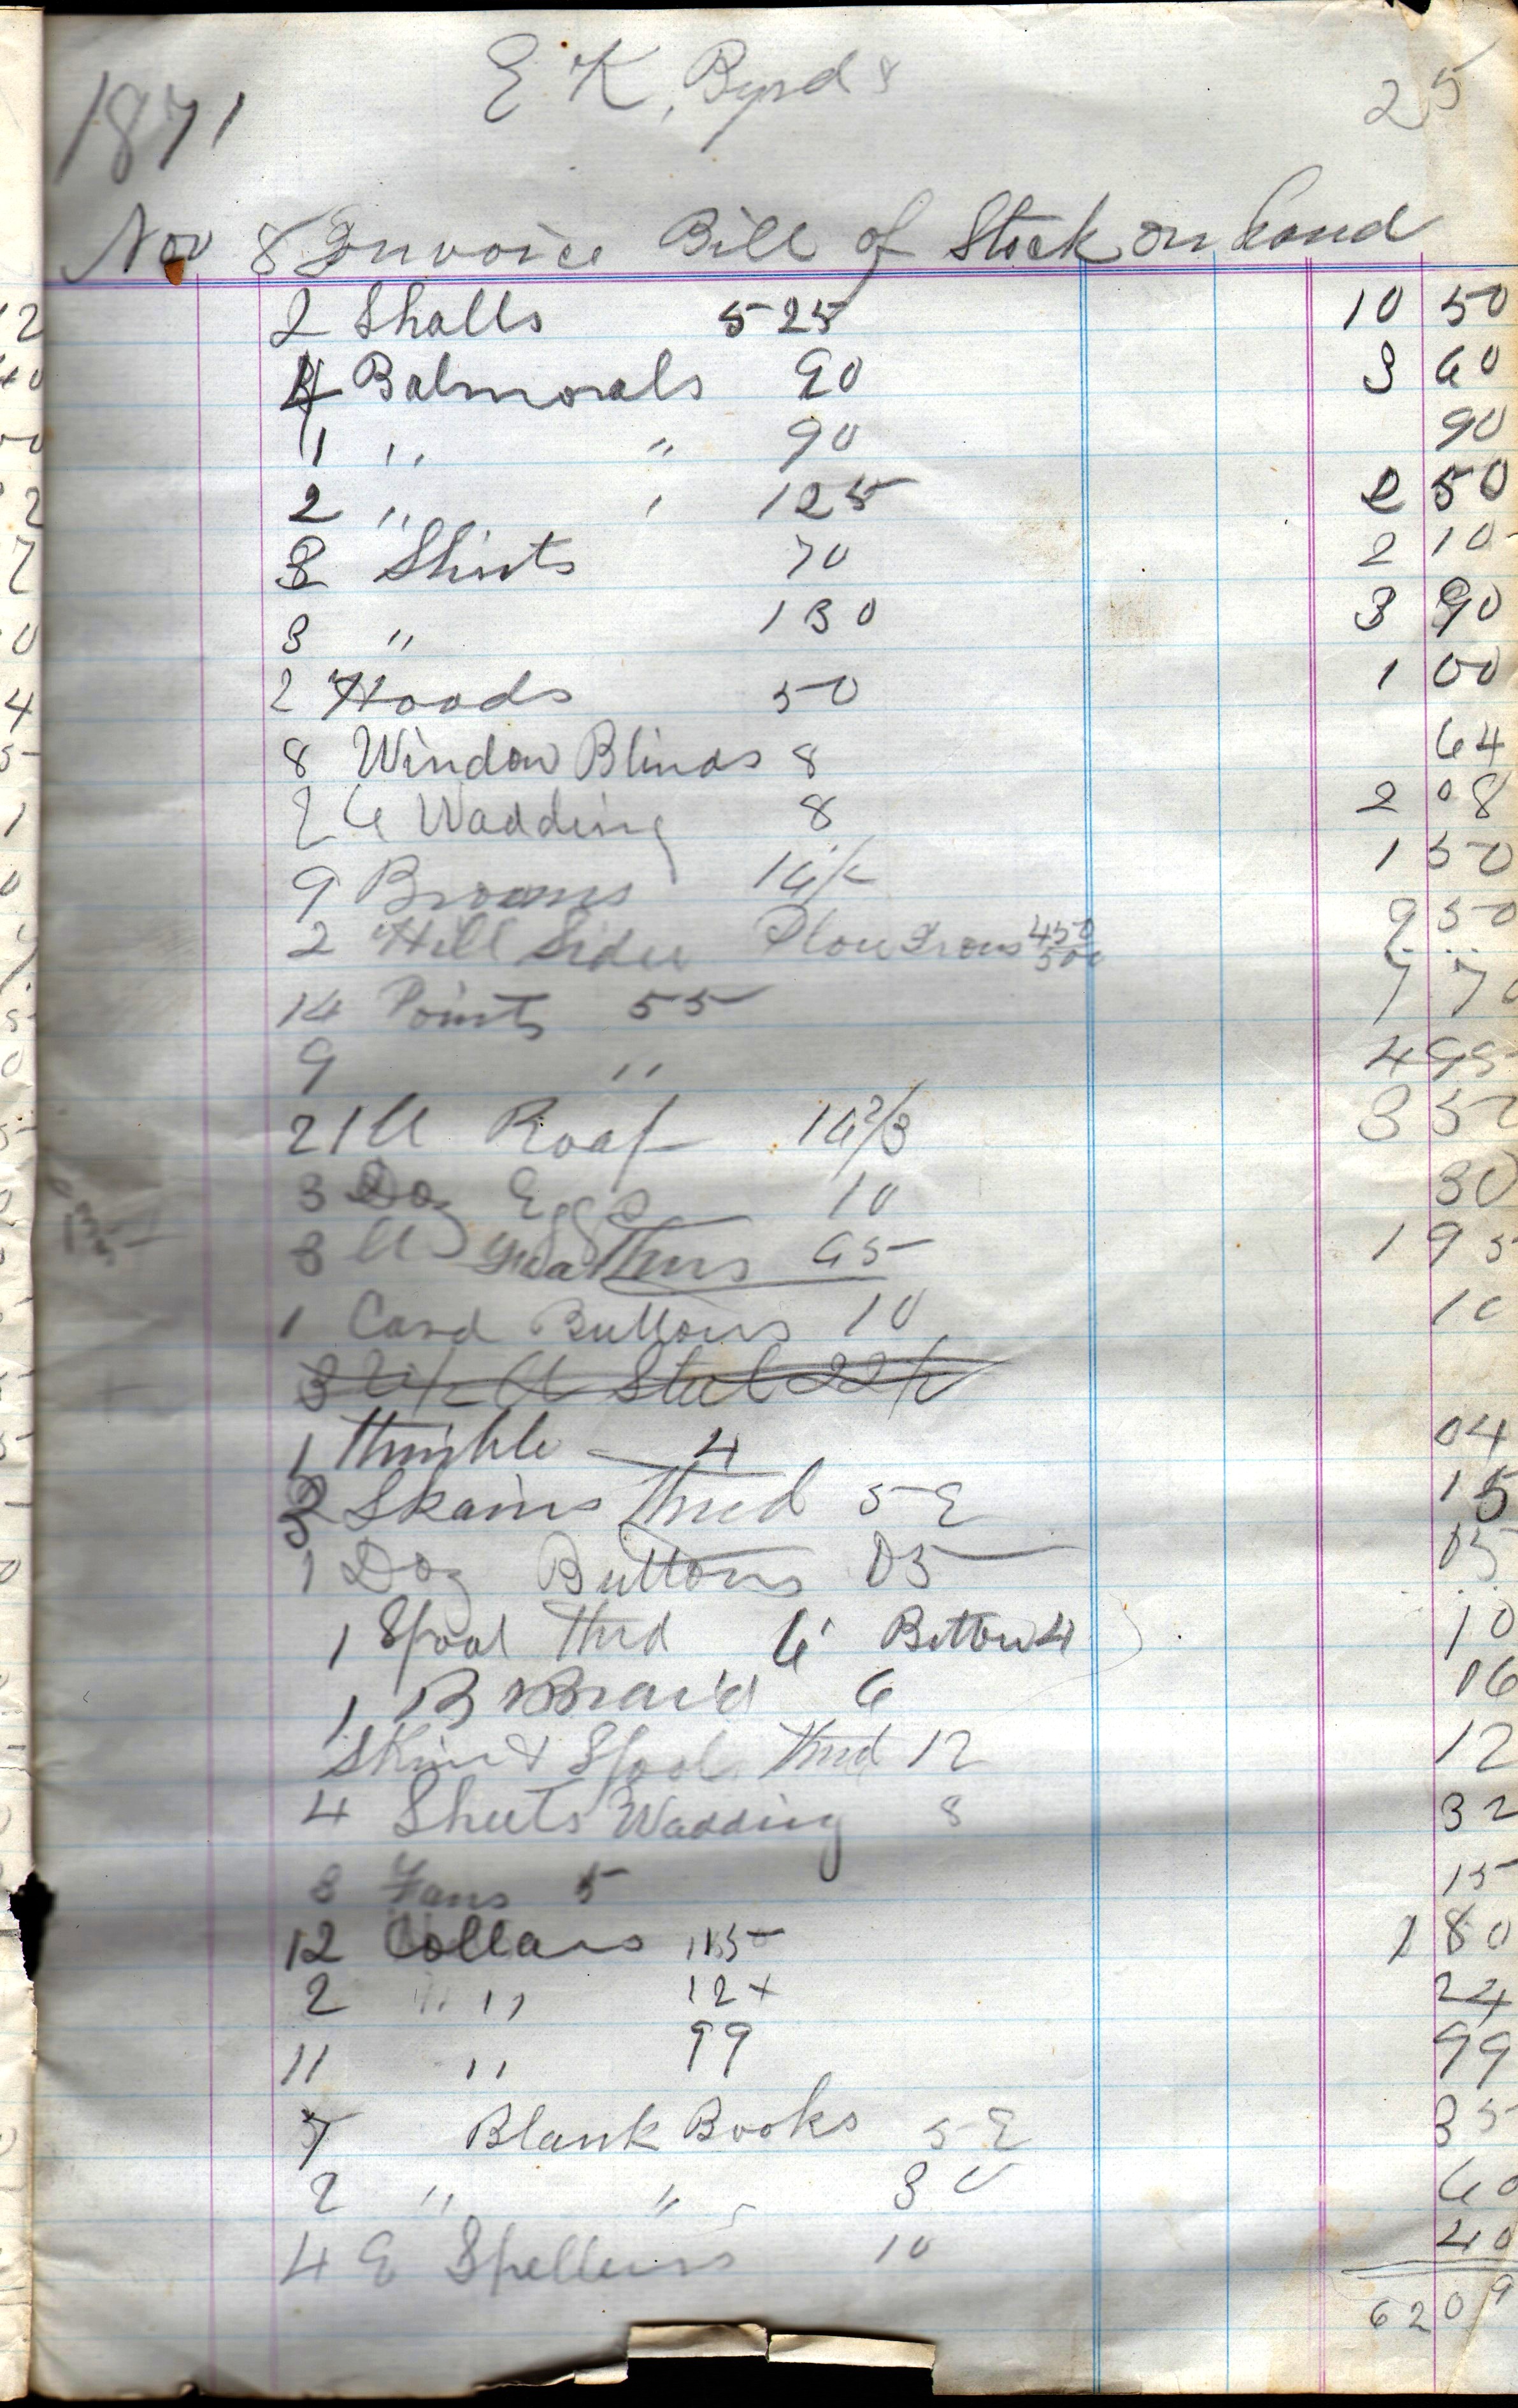 1871 E K, Byrds 25
Nov 8 Invoice Bill of Stock on hand
2 Shalls 5 25 10 50
4 Balmorals 90 3 60
1 " " 90 90
2 " " 125 2 50
3 Shirts 70 2 10
3 " 130 3 90
2 Hoods 50 1 00
8 Window Blinds 8 64
26 Wadding 8 2 08
9 Brooms 1 50
2 Hill Sider Plow Irons 450 500 9 50
14 Points 55 7 70
9 " 4 95
21 lb Roap 16 2/3 3 50
3 Doz Eggs 10 30
3 lb Feathers 65 1 95
1 Card Buttons 10 10
Steel
1 Thimble 4 04
3 Skains Thred 5 E 15
1 Doz Buttons 05 05
1 Spool Thred 6 Botton 4 10
1 B Braid 6 06
Skein & Spool Thred 12 12
4 Sheets Wadding 8 32
3 Fans 5 15
12 Collars 15 1 80
2 " " 12 24
11 " 99 99
7 Blank Books 5 E 35
2 " " 30 60
4 E Spellers 10 40
62 09